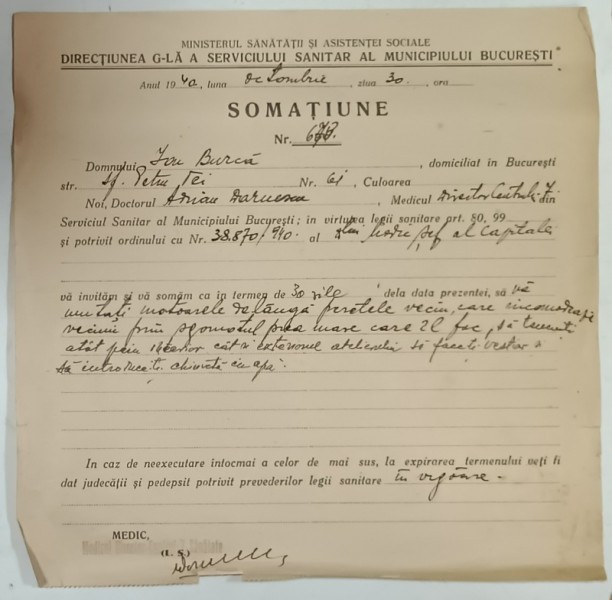 MINISTERUL SĂNĂTĂȚII ȘI ASISTENȚEI SOCIALE
DIRECȚIUNEA G-LĂ A SERVICIULUI SANITAR AL MUNICIPIULUI BUCUREȘTI
Anul 1940, luna Octombrie, ziua 30. ora
SOMAȚIUNE
Nr.
Domnului Ion Burcă, domiciliat în București
str. Sf. Petru Tei Nr. 61, Culoarea
Noi, Doctorul Adrian, Medicul din
Serviciul Sanitar al Municipiului București; in virtutea legii sanitare art. 80, 99
și potrivit ordinului cu Nr. 38.870/940 al Medic șef al Capitalei
vă invităm și vă somăm ca în termen de 30 zile dela data prezentei, să vă
mutați motoarele de lângă peretele vecin, care incomodează
vecinii prin sgomotul prea mare care îl fac, să
atât prin interior cât și exteriorul atelierului să faceți vestiar și
să introduceți chiuvetă cu apă.
In caz de neexecutare intocmai a celor de mai sus, la expirarea termenului veți fi
dat judecății și pedepsit potrivit prevederilor legii sanitare în vigoare.
MEDIC,
(L. S.)